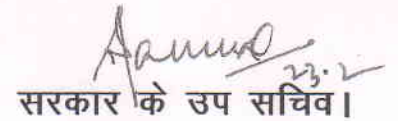 23.2
सरकार के उप सचिव।